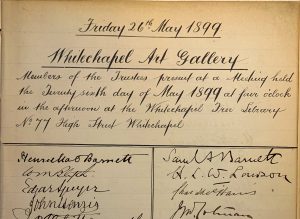 Friday 26th May 1899
Whitechapel Art Gallery
Members of the Trustees present at a Meeting held
the Twenty sixth day of May 1899 at four o'clock
in the afternoon at the Whitechapel Free Library
No 77 High Street Whitechapel
Henrietta O Barnett
Edgar Speyer
Saml A Barnett